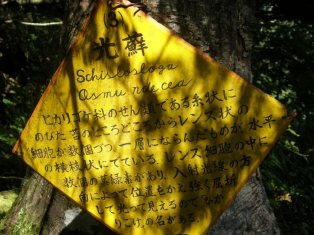 (8)
光蘚
Schistostega
Osmundacea
ヒカリゴケ科のせん苔である糸状に
のびた苔のところどころからレンズ状の
細胞が数個づつ、一層にならんだものが、水平
の横枝状にでている。レンズ細胞の中に
数個の葉緑素があり、入射光線の方
向によって位置をかえ強く屈折
して光って見えるので「ひか
りごけ」の名がある。